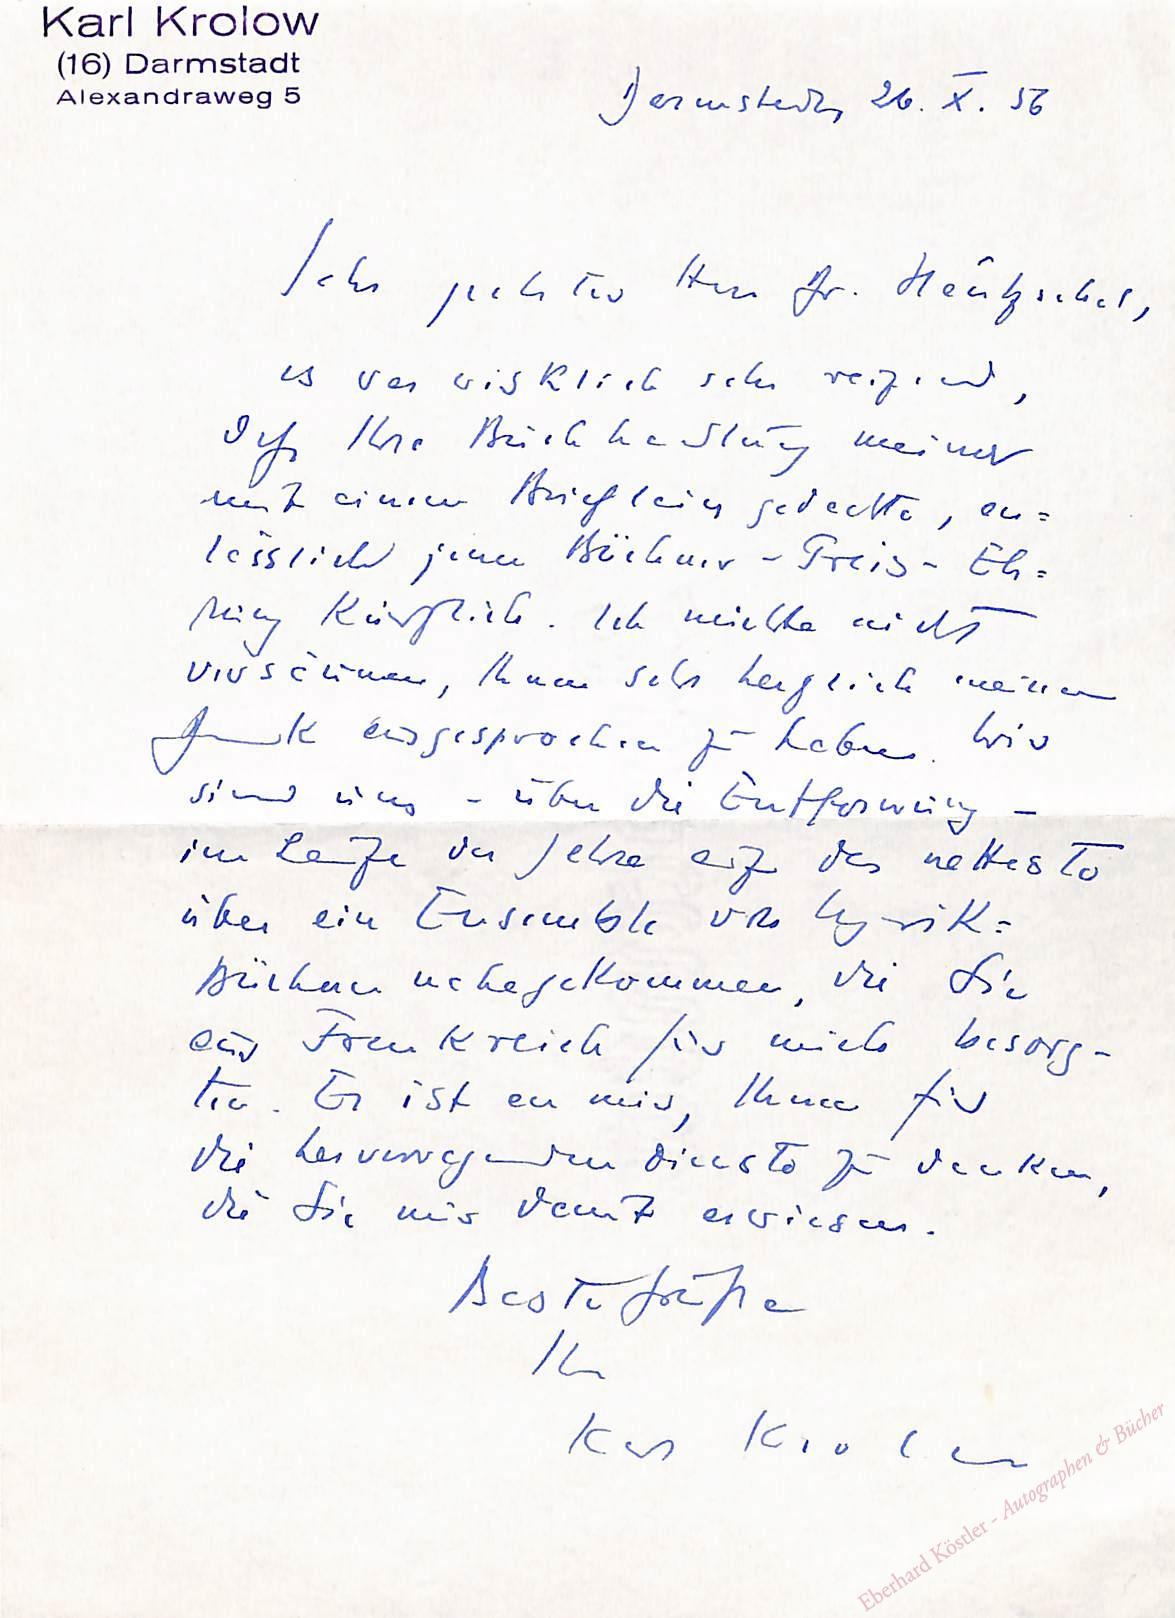 Karl Krolow
(16) Darmstadt
Alexandraweg 5
Darmstadt, 26. X. 56
Sehr geehrter Herr Dr. Häntzschel,
es war wirklich sehr reizend,
daß Ihre Buchhandlung meiner
mit einem Brieflein gedachte, an=
lässlich jener Büchner-Preis-Eh=
rung kürzlich. Ich möchte nicht
versäumen, Ihnen sehr herzlich meinen
Dank ausgesprochen zu haben. Wir
sind uns - über die Entfernung -
im Laufe der Jahre auf das netteste
über ein Ensemble von Lyrik=
Büchern nahegekommen, die Sie
aus Frankreich für mich besorg-
ten. Es ist an mir, Ihnen für
die hervorragenden Dienste zu danken,
die Sie mir damit erwiesen.
Beste Grüße
Ihr
Karl Krolow
Eberhard Köstler - Autographen & Bücher